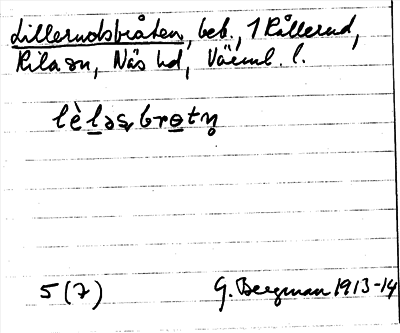 Lillerudsbråten, beb., 1 Rållerud,
Kila sn, Näs hd, Värml. l.
lèləsbrɵtn̥
5 (7) G. Bergman 1913-14